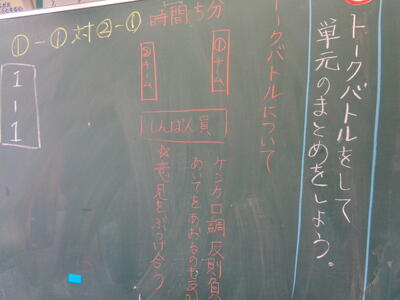 トークバトルをして
単元のまとめをしよう。
トークバトルについて
時間5分
①チーム
②チーム
しんぱん員
ケンカ口調反則負
あいてをあおるのも反則
☆意見をぶつけ合う
①-①対②-①
1-1